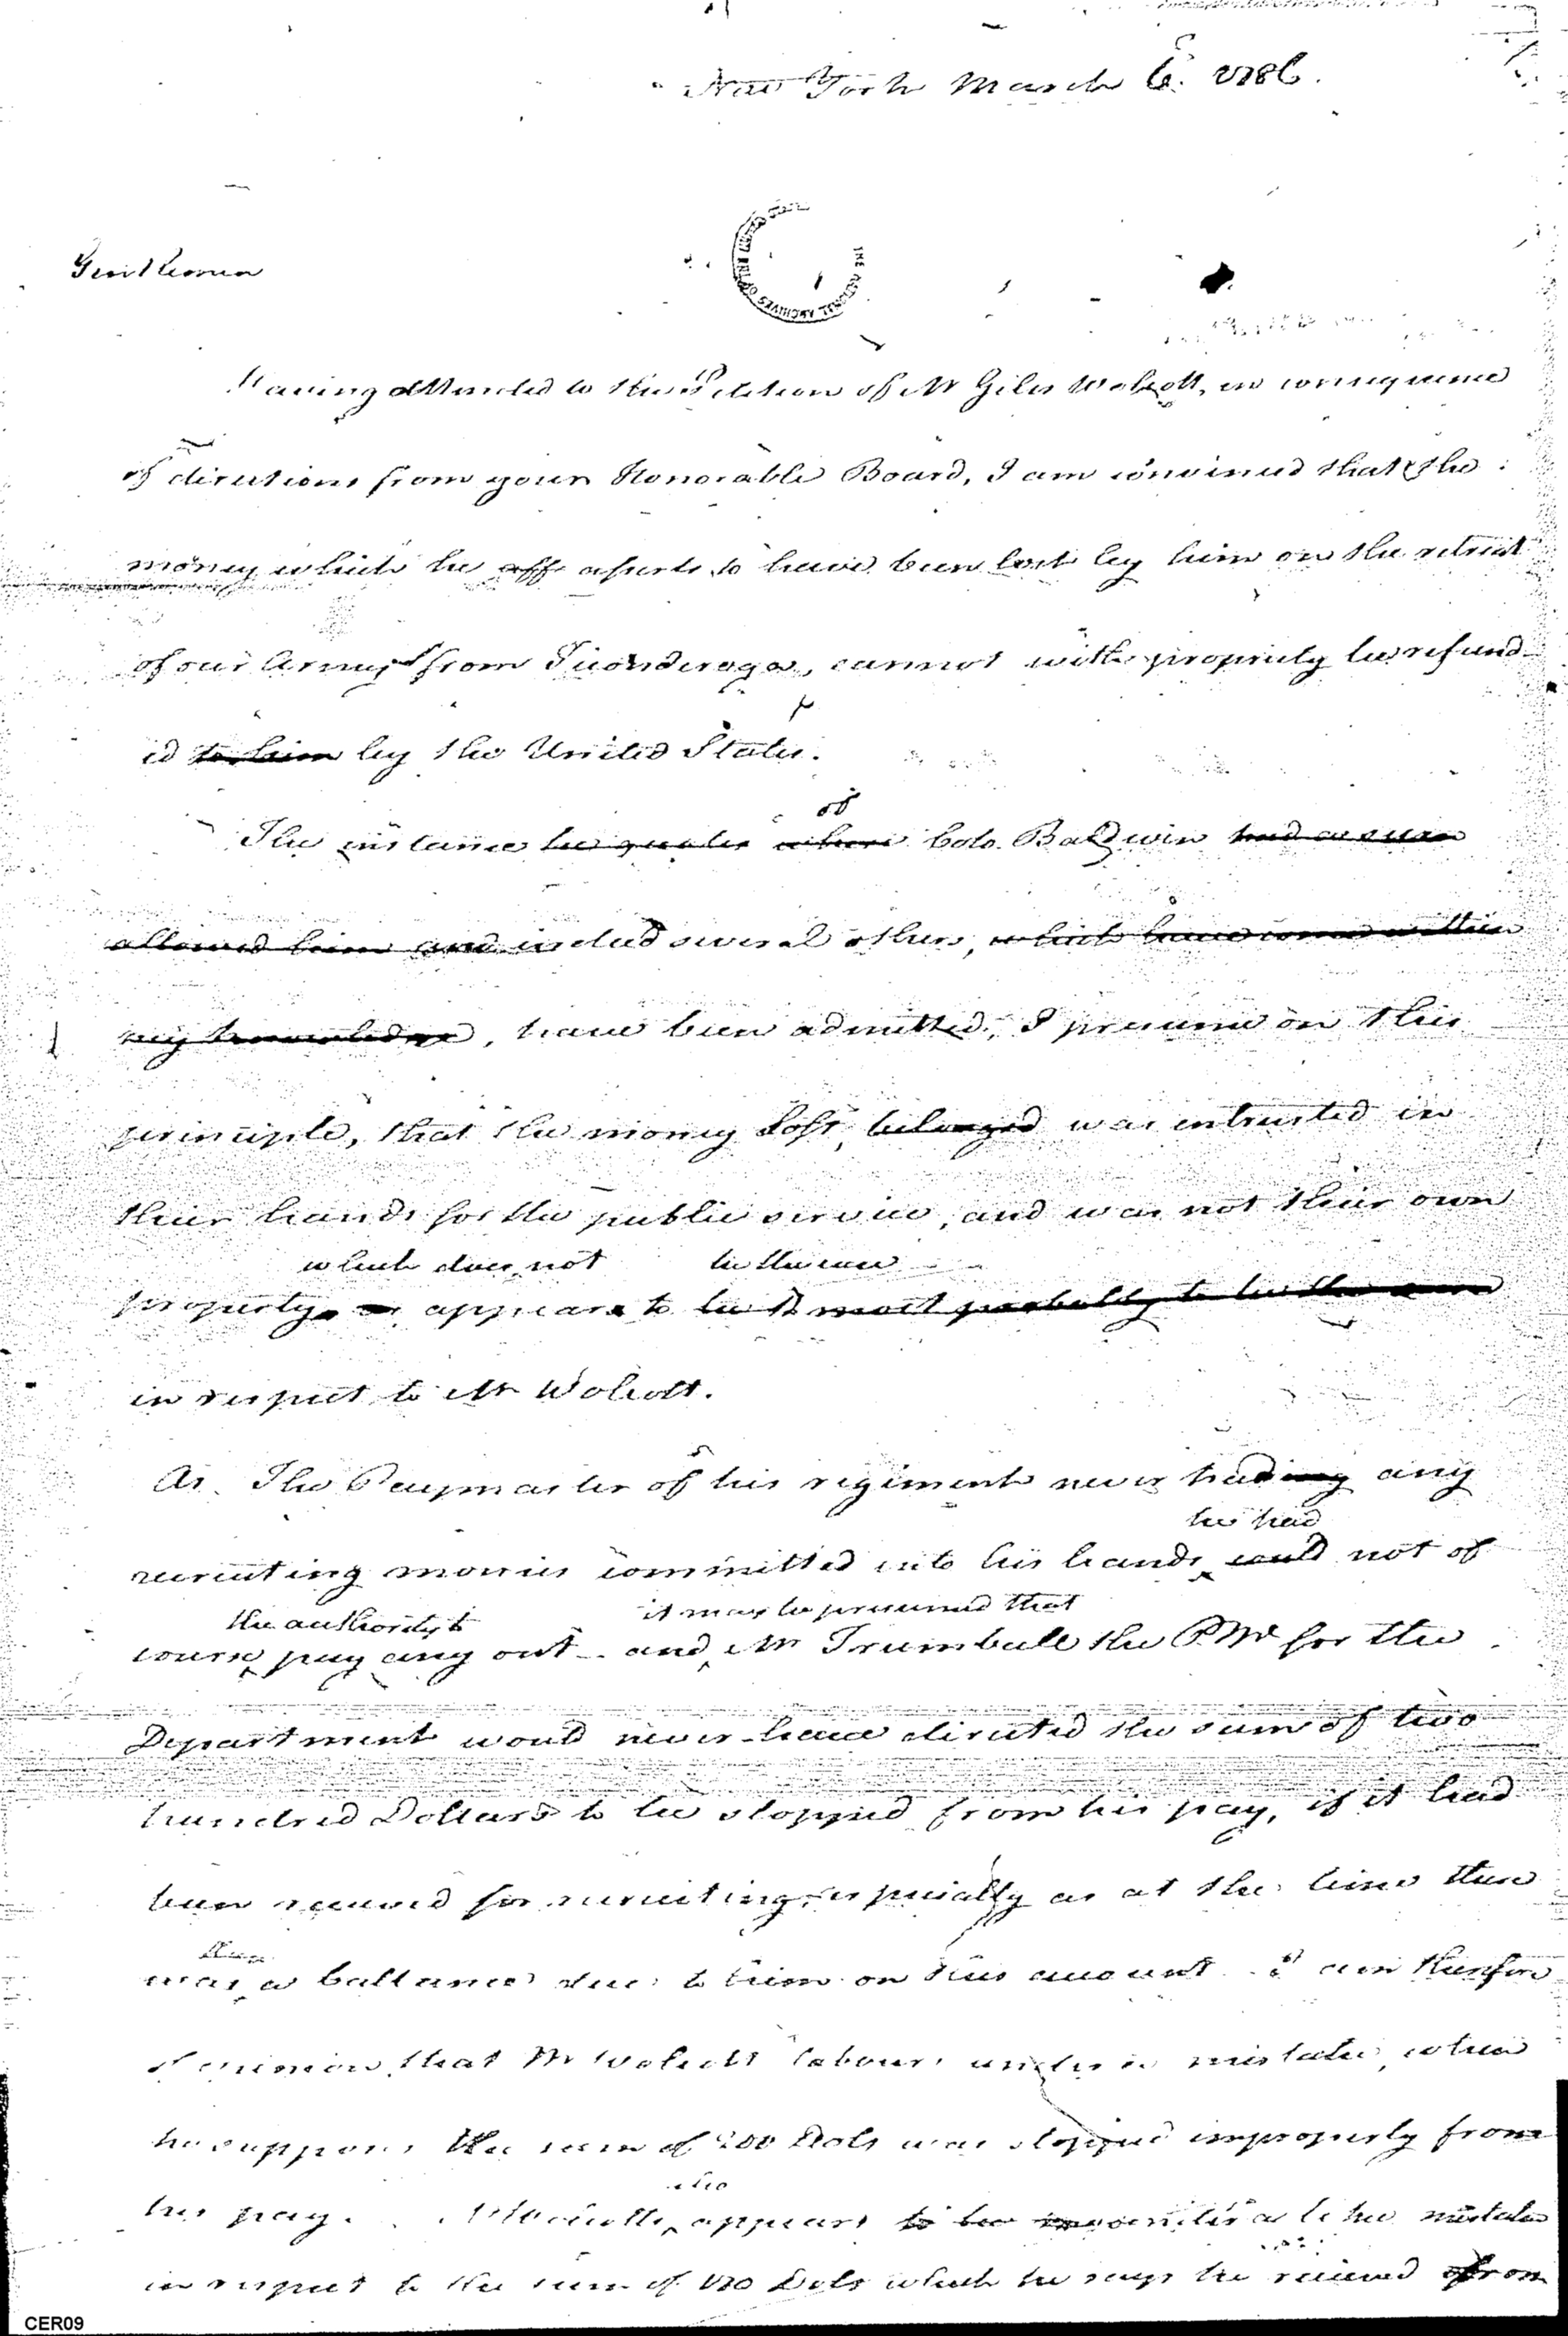 New York March 6. 1786.
Gentlemen
Having attended to the Petition of Mr Giles Wolcott, in consequence
of directions from your Honorable Board, I am convinced that the
money which he aff asserts to have been lost by him on the retreat
of our Army from Ticonderoga, cannot with propriety be refund
ed to him by the United States.
of
The instance he quotes where Colo. Baldwin had a sum
allowed him and indeed several others, which have come within
my knowledge, have been admitted, I presume on this
principle, that the money lost, belonged was intrusted in
their hands for the public service, and was not their own
which does not be the case
property, appears to be most probably to be the case
in respect to Mr Wolcott.
As The Paymaster of his regiment never had any
he had
recruiting monies committed into his hands, could not of
the authority to it may be presumed that
course pay any out - and Mr Trumbull the P.Mr for the
Department would never have directed the sum of two
hundred Dollars to be stopped from his pay, if it had
been received for recruiting, especially as at the time there
was a ballance due to him on this account. I am therefore
of opinion, that Mr Wolcott labours under a mistake, when
he supposes the sum of 200 Dols was stopped improperly from
also
his pay. Mr Wolcott appears to be a like mistake
in respect to the sum of 120 Dols which he says he received from
THE ARCHIVES OF
CER09